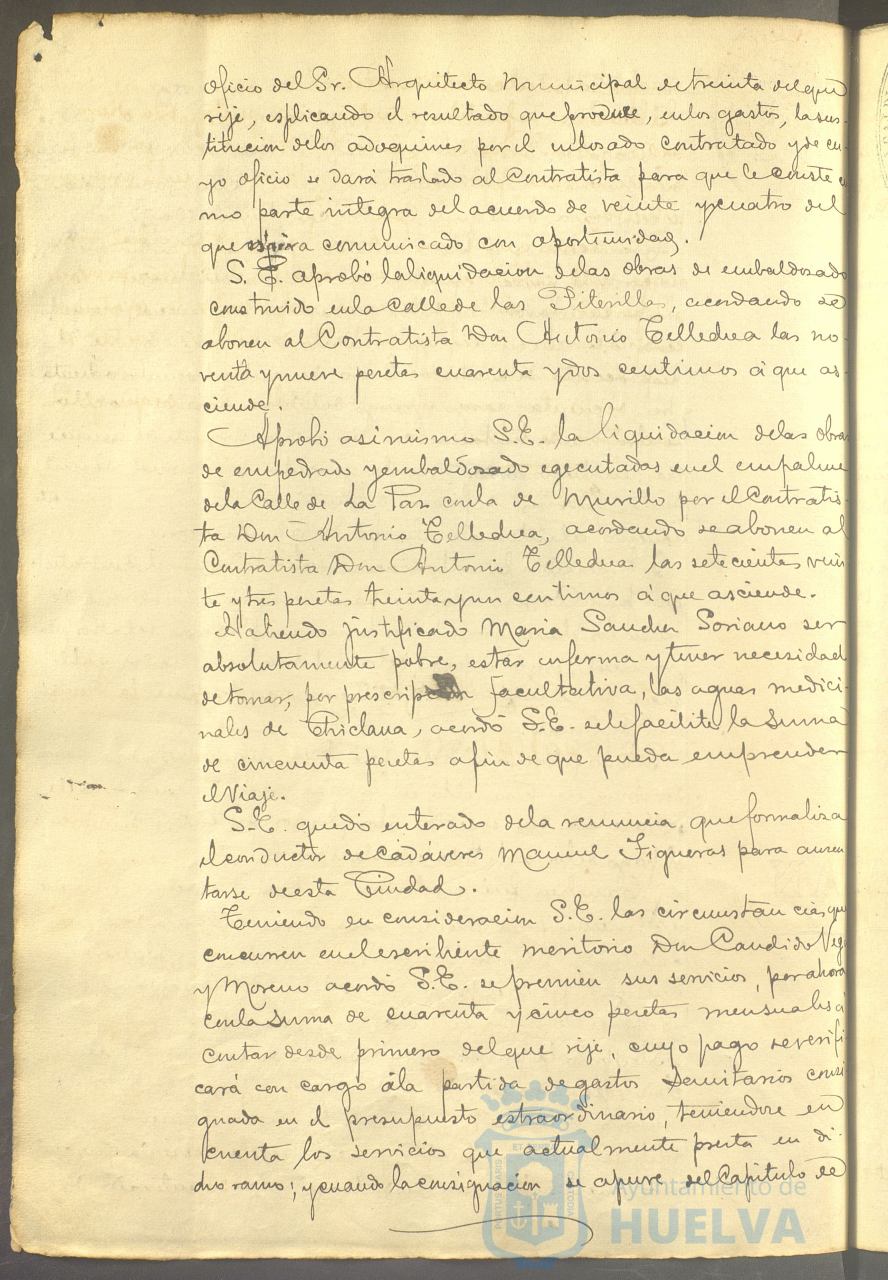 oficio del Sr. Arquitecto Municipal de treinta del que
rije, esplicando el resultado que produce, en los gastos, la sus-
titucion de los adoquines por el enlosado contratado y de cu-
yo oficio se dará traslado al Contratista para que le conste co
mo parte integra del acuerdo de veinte y cuatro del
que espira comunicado con oportunidad.
S. E. aprobó la liquidacion de las obras de embaldosado
construido en la Calle de las Piterillas, acordando se
abonen al Contratista Don Antonio Telledua las no-
venta y nueve pesetas cuarenta y dos centimos á que as-
ciende.
Aprobó asimismo S. E. la liquidacion de las obras
de empedrado y embaldosado egecutadas en el empalme
de la Calle de La Paz con la de Murillo por el Contratis-
ta Don Antonio Telledua, acordando se abonen al
Contratista Don Antonio Telledua las setecientas vein
te y tres pesetas treinta y un centimos á que asciende.
Habiendo justificado Maria Sanchez Soriano ser
absolutamente pobre, estar enferma y tener necesidad
de tomar, por prescripcion facultativa, las aguas medici-
nales de Chiclana, acordó S. E. se le facilite la suma
de cincuenta pesetas a fin de que pueda emprender
el Viaje.
S. E. quedó enterado de la renuncia que formaliza
el conductor de Cadáveres Manuel Figueras para ausen
tarse de esta Ciudad.
Teniendo en consideracion S. E. las circunstancias que
concurren en el escribiente meritorio Don Candido Vega
y Moreno acordó S. E. se premien sus servicios, por ahora
con la suma de cuarenta y cinco pesetas mensuales á
contar desde primero del que rije, cuyo pago se verifi
cará con cargo á la partida de gastos Sanitarios consi
gnada en el presupuesto estraordinario, teniendose en
cuenta los servicios que actualmente presta en di-
cho ramo; y cuando la consignacion se apure del Capitulo de
Ayuntamiento de
HUELVA